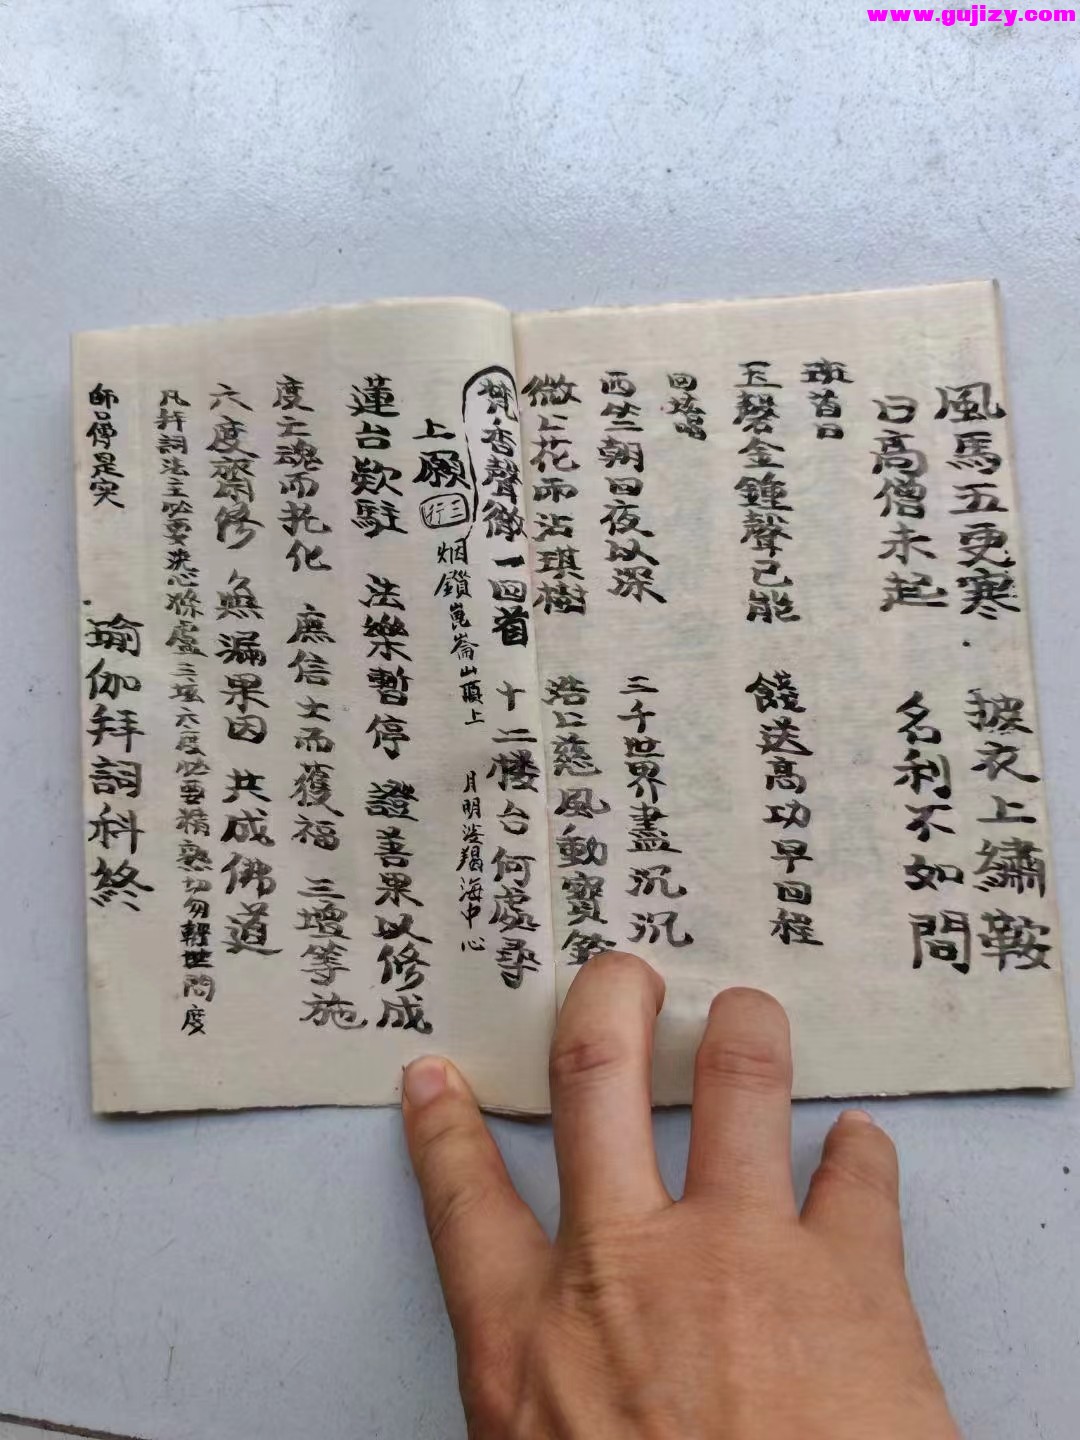 www.gujizy.com
風馬五更寒 披衣上繡鞍
日高僧未起 名利不如閒
班首曰
玉磬金鍾聲已能 餞送高功早回程
回壇唱
西竺朝回夜以深 三千世界盡沉沉
微〻花雨沾琪樹 浩〻慈風動寶鈴
梵香聲徹一回首 十二楼台何處尋
上願 三行 烟鎖崑崙山頂上 月明娑羯海中心
蓮台歘駐 法樂暫停 證善果以修成
度亡魂而托化 庶信士而獲福 三壇等施
六度齋修 無漏果因 共成佛道
凡拜詞法主必要洗心滌慮三坛六度必要精熟切勿輕世問度
師品傳是实
瑜伽拜詞科終